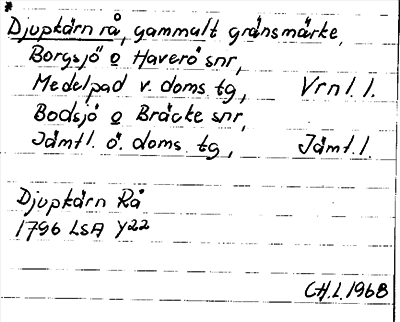 *
Djupkärn rå, gammalt gränsmärke,
Borgsjö o Haverö snr,
Medelpad v. doms tg, Vrnl. l.
Bodsjö o Bräcke snr,
Jämtl. ö. doms tg, Jämtl. l.
Djupkärn Rå
1796 LSA Y22
CH.L. 1968